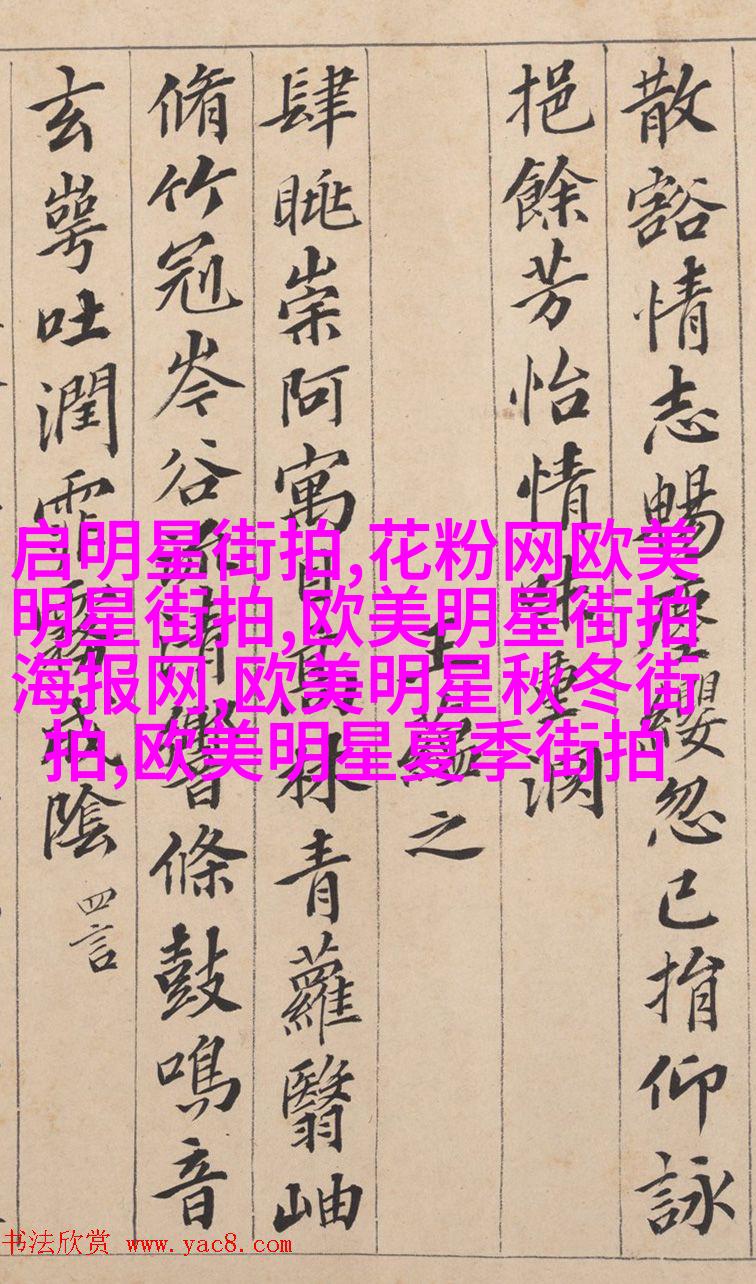 散豁情志暢塵纓忽已捐仰詠
挹餘芳怡情味重淵
王蘊之
肆眺崇阿寓目高林青蘿翳岫
脩竹冠岑谷流清響條鼓鳴音
玄崿吐潤霏霧成陰 四言
启明星街拍,花粉网欧美
明星街拍,欧美明星街拍
海报网,欧美明星秋冬街
拍,欧美明星夏季街拍
书法欣赏 www.yac8.com